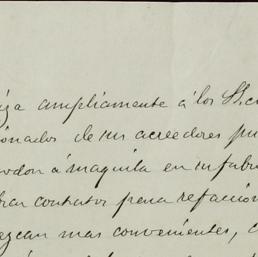 iza ampliamente á los S.
ionados de sus acreedores pa
odon á maquila en su fabri
brar contratos para refacción
ezcan mas convenientes, c